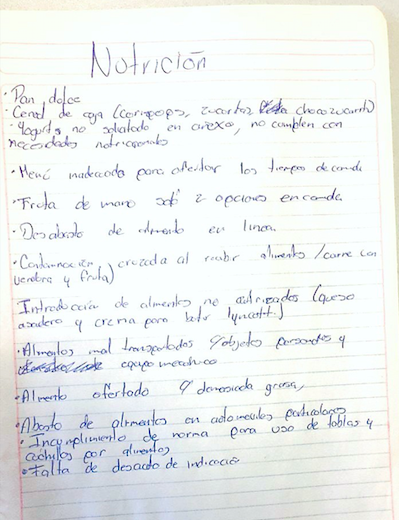 Nutrición
· Pan dolce
· Cereal de caja (cornpops, zucaritas chocozucarit)
· Yogurt no solicitado en anexo, no cumplen con
necesidades nutricionales
· Menú inadecuado para ofertar los tiempos de comida
· Fruta de mano solo 2 opciones en comida
· Desabasto de alimento en linea
· Contaminación cruzada al recibir alimentos /carne con
verdura y fruta)
Introducción de alimentos no autorizados (queso
asadero y crema para
· Alimentos mal transportados c/objetos personales y
equipo mecanico
· Alimento ofertado c/ demasiada grasa,
· Abasto de alimentos en automoviles particulares
· Incumplimiento de norma para uso de tablas y
cuchillos por alimentos
· Falta de desacato de indicación